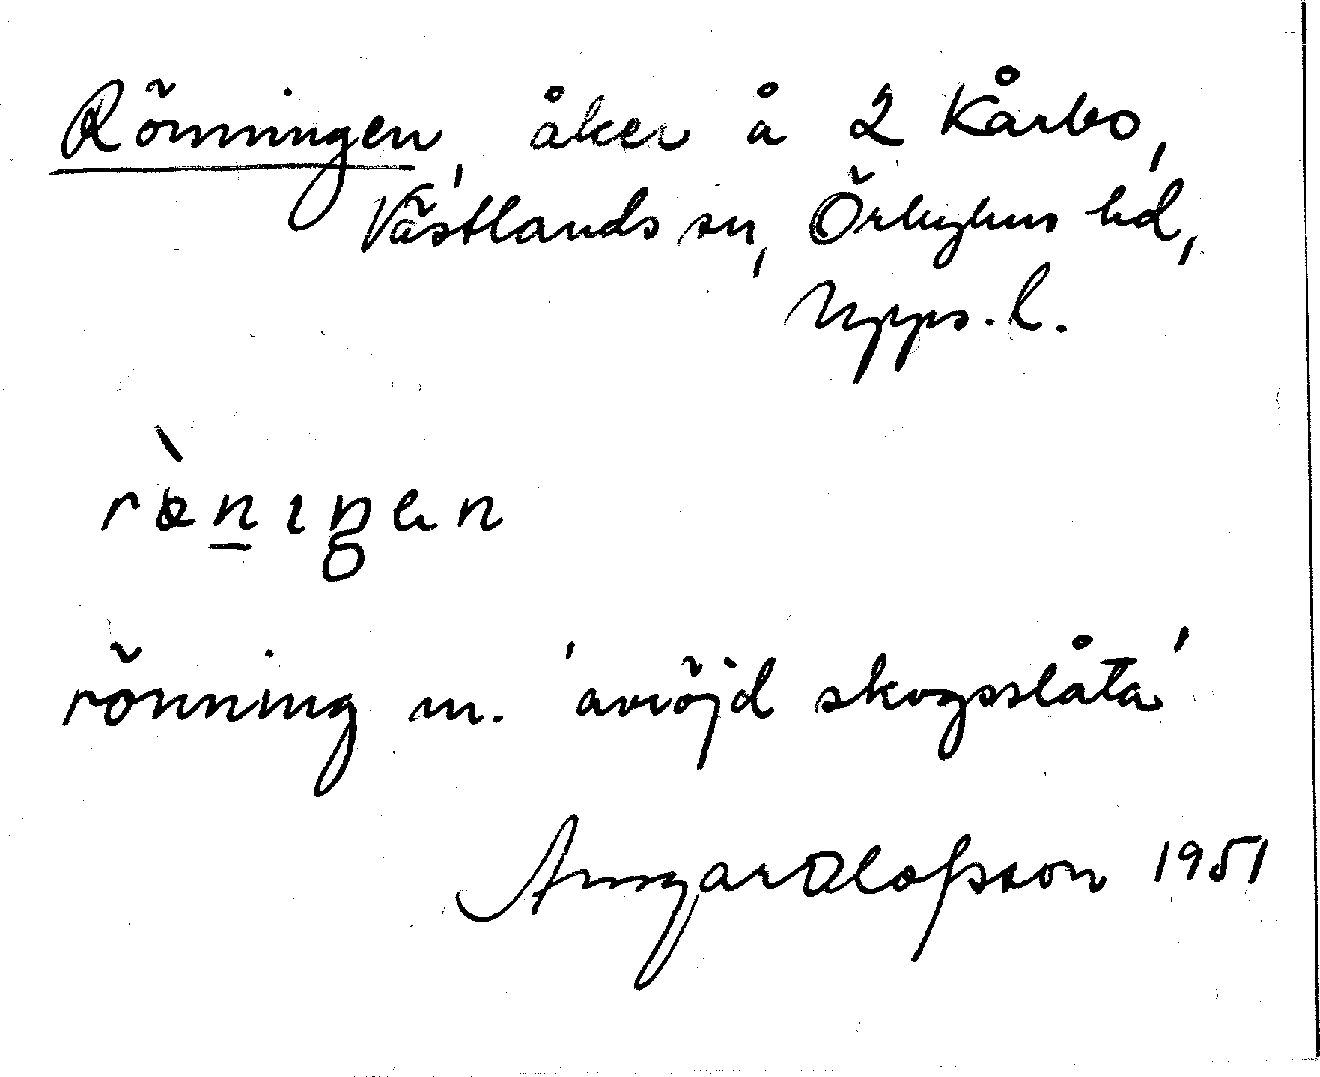 Rönningen, åker å 2 Kårbo,
Västlands sn, Örbyhus hd,
Upps. l.
rὸ̀n̲ıŋen
rönning m. 'avröjd skogsslåtta'
Ansgar Olofsson 1951